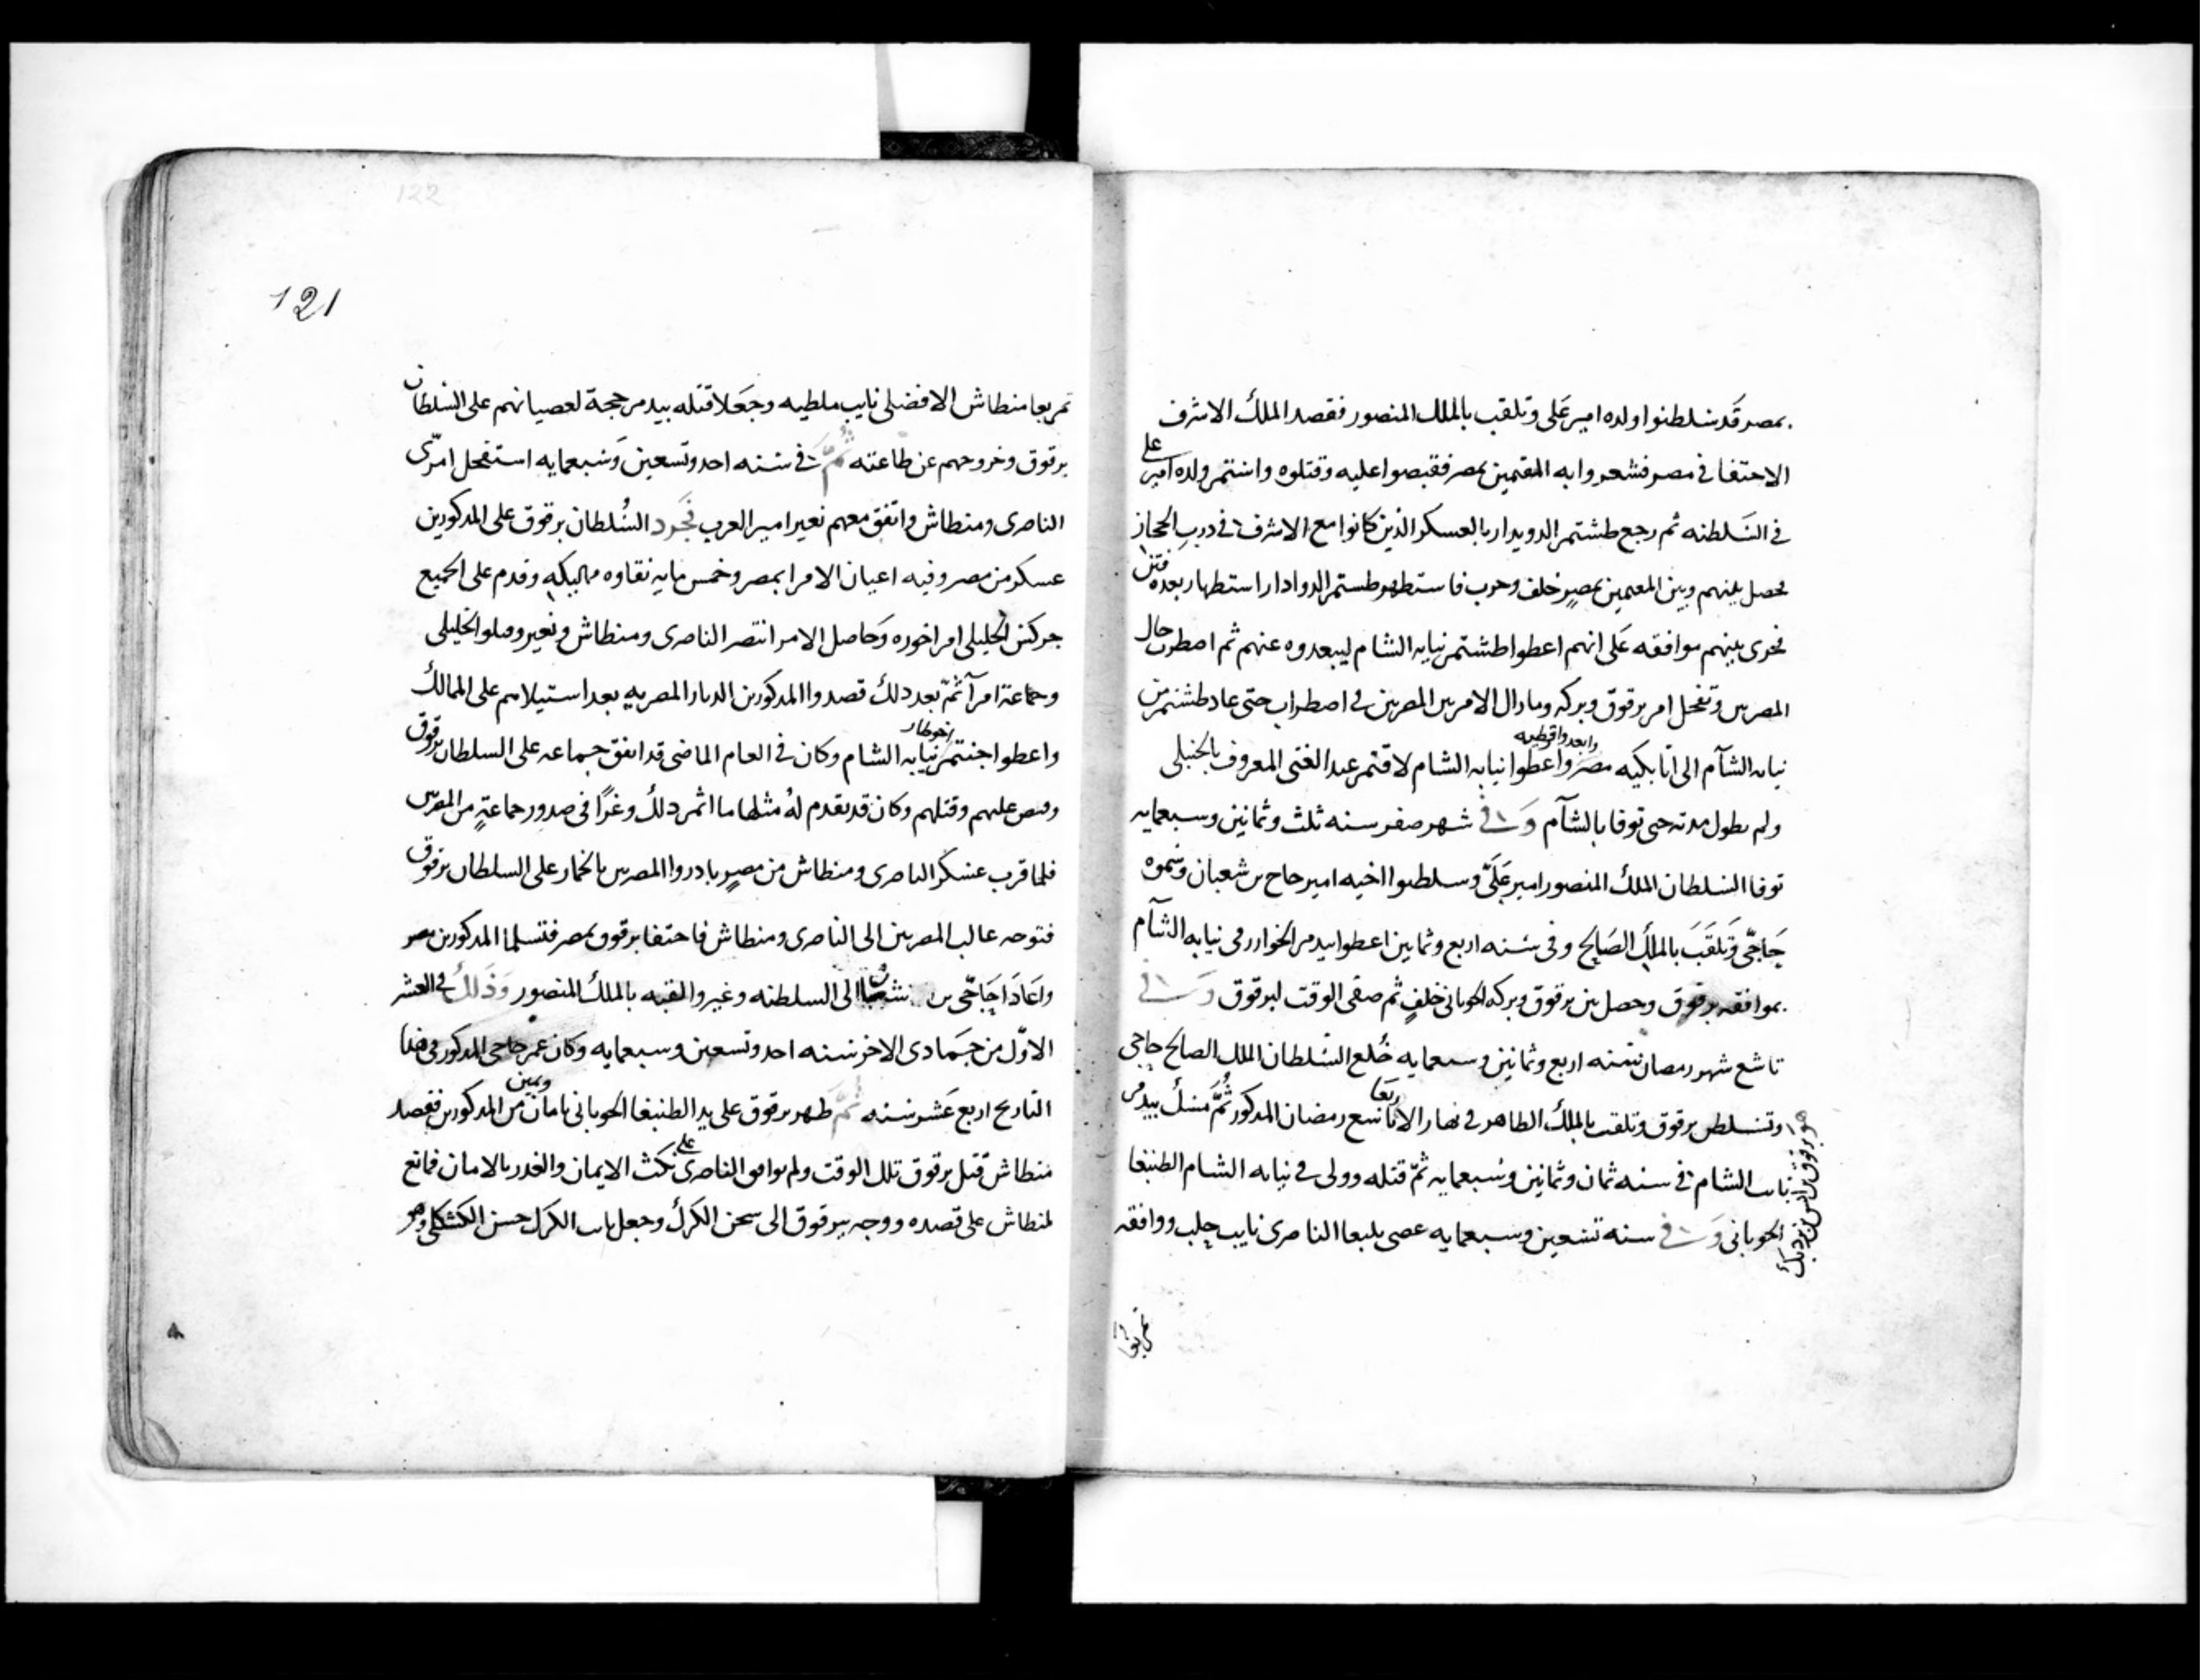 بمصر قد سلطنوا ولده امير على وتلقب بالملك المنصور فقصد الملك الاشرف
الاختفا فى مصر فشعروا به المقيمين بمصر فقبضوا عليه وقتلوه واستمر ولده امير على
فى السلطنه ثم رجع طشتمر الدويدار بالعسكر الذين كانوا مع الاشرف فى درب الحجاز
فحصل بينهم وبين المقيمين بمصر خلف وحرب فاستظهر طشتمر الدوادار استظهار بعده فتن
فجرى بينهم موافقه على انهم اعطوا طشتمر نيابه الشام ليبعدوه عنهم ثم اضطرب حال
المصريين وتفحل امر برقوق وبركه ومازال الامر بين المصريين فى اضطراب حتى عاد طشتمر من
نيابه الشام الى اتابكيه مصر واعطوا نيابه الشام لاقتمر عبد الغنى المعروف بالحنبلى
ولم تطول مدته حتى توفا بالشام وفى شهر صفر سنه ثلث وثمانين وسبعمايه
توفا السلطان الملك المنصور امير على وسلطنوا اخيه امير حاج بن شعبان وسموه
حاجى وتلقب بالملك الصالح وفى سنه اربع وثمانين اعطوا بيدمر الخوارزمى نيابه الشام
بموافقه برقوق وحصل بين برقوق وبركه الجوبانى خلف ثم صفى الوقت لبرقوق وفى
تاسع شهر رمضان سنه اربع وثمانين وسبعمايه خلع السلطان الملك الصالح حاجى
وتسلطن برقوق وتلقب بالملك الظاهر فى نهار الاربعا تاسع رمضان المذكور ثم مسك بيدمر
نايب الشام فى سنه ثمان وثمانين وسبعمايه ثم قتله وولى فى نيابه الشام الطنبغا
الجوبانى وفى سنه تسعين وسبعمايه عصى يلبغا الناصرى نايب حلب ووافقه
هو برقوق بن انس بن يزدبك
تمربغا
121
122
تمربغا منطاش الافضلى نايب ملطيه وجعلا قتله بيدمر حجة لعصيانهم على السلطان
برقوق وخروجهم عن طاعته ثم فى سنه احد وتسعين وسبعمايه استفحل امر
الناصرى ومنطاش واتفق معهم نعير امير العرب فجرد السلطان برقوق على المذكورين
عسكر من مصر وفيه اعيان الامرا بمصر وخمس مايه نقاوه مماليكه وقدم على الجميع
جركس الخليلى امر اخوره وحاصل الامر انتصر الناصرى ومنطاش ونعير وقتلوا الخليلى
وجماعة امرآ ثم بعد ذلك قصدوا المذكورين الديار المصريه بعد استيلاهم على الممالك
واعطوا جنتمر اخو طاز نيابه الشام وكان فى العام الماضى قد اتفق جماعه على السلطان برقوق
وقبض عليهم وقتلهم وكان قد تقدم له مثلها ما اثمر ذلك وغرًا فى صدور جماعةٍ من المصريين
فلما قرب عسكر الناصرى ومنطاش من مصر بادروا المصريين بالخمار على السلطان برقوق
فتوجه غالب المصريين الى الناصرى ومنطاش فاختفا برقوق بمصر فتسلما المذكورين مصر
واعادا حاجى بن شعبان الى السلطنه وغيروا لقبه بالملك المنصور وذلك فى العشر
الاوّل من جمادى الاخر سنه احد وتسعين وسبعمايه وكان عمر حاجى المذكور فى هذا
التاريخ اربع عشر سنه ثم ظهر برقوق على يد الطنبغا الجوبانى بامان ويمين من المذكورين فقصد
منطاش قتل برقوق تلك الوقت ولم يوافق الناصرى على نكث الايمان والغدر بالامان فمانع
لمنطاش على قصده ووجه ببرقوق الى سجن الكرك وجعل نايب الكرك حسن الكشكلى وهو